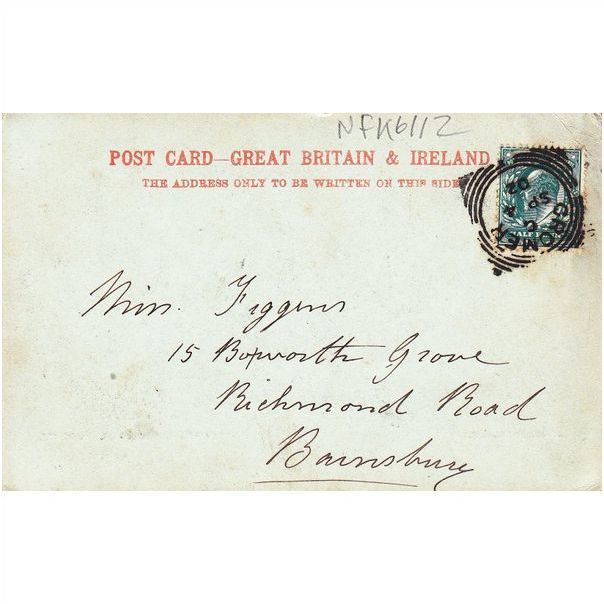 NFK6112
POST CARD—GREAT BRITAIN & IRELAND
THE ADDRESS ONLY TO BE WRITTEN ON THIS SIDE
HALF
CROMER
SP
02
Miss. Figgens
15 Boxworth Grove
Richmond Road
Barnsbury